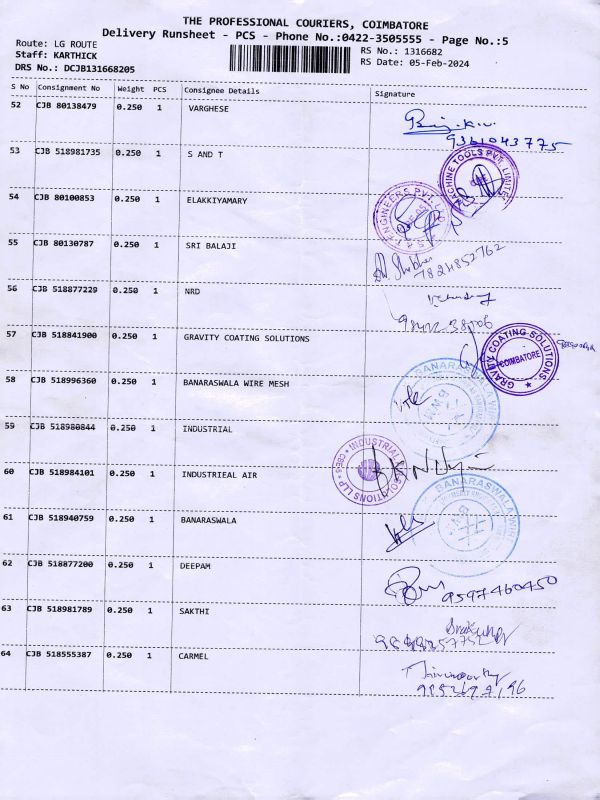 THE PROFESSIONAL COURIERS, COIMBATORE
Delivery Runsheet - PCS - Phone No.:0422-3505555 - Page No.:5
Route: LG ROUTE RS No.: 1316682
Staff: KARTHICK RS Date: 05-Feb-2024
DRS No.: DCJB131668205
S No Consignment No Weight PCS Consignee Details Signature
52 CJB 80138479 0.250 1 VARGHESE
9361043775
53 CJB 518981735 0.250 1 S AND T
MACHINE TOOLS PVT. LIMITED
54 CJB 80100853 0.250 1 ELAKKIYAMARY
ENGINEERS PVT. LTD
55 CJB 80130787 0.250 1 SRI BALAJI
7824852762
56 CJB 518877229 0.250 1 NRD
57 CJB 518841900 0.250 1 GRAVITY COATING SOLUTIONS
GRAVITY COATING SOLUTIONS
COIMBATORE
58 CJB 518996360 0.250 1 BANARASWALA WIRE MESH
BANARASWALA WIRE
59 CJB 518980844 0.250 1 INDUSTRIAL
INDUSTRIAL SOLUTIONS LLP
60 CJB 518984101 0.250 1 INDUSTRIEAL AIR
BANARASWALA WIRE
61 CJB 518940759 0.250 1 BANARASWALA
62 CJB 518877200 0.250 1 DEEPAM
9597460450
63 CJB 518981789 0.250 1 SAKTHI
64 CJB 518555387 0.250 1 CARMEL